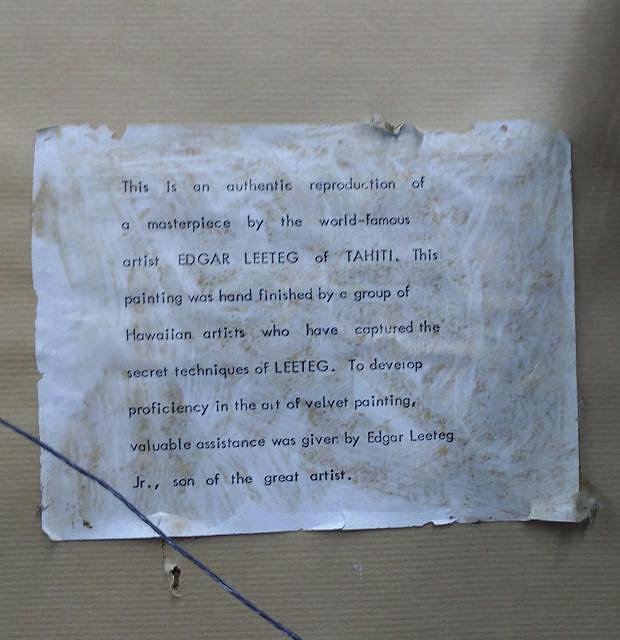 This is an authentic reproduction of
a masterpiece by the world-famous
artist EDGAR LEETEG of TAHITI. This
painting was hand finished by a group of
Hawaiian artists who have captured the
secret techniques of LEETEG. To develop
proficiency in the art of velvet painting,
valuable assistance was given by Edgar Leeteg
Jr., son of the great artist.